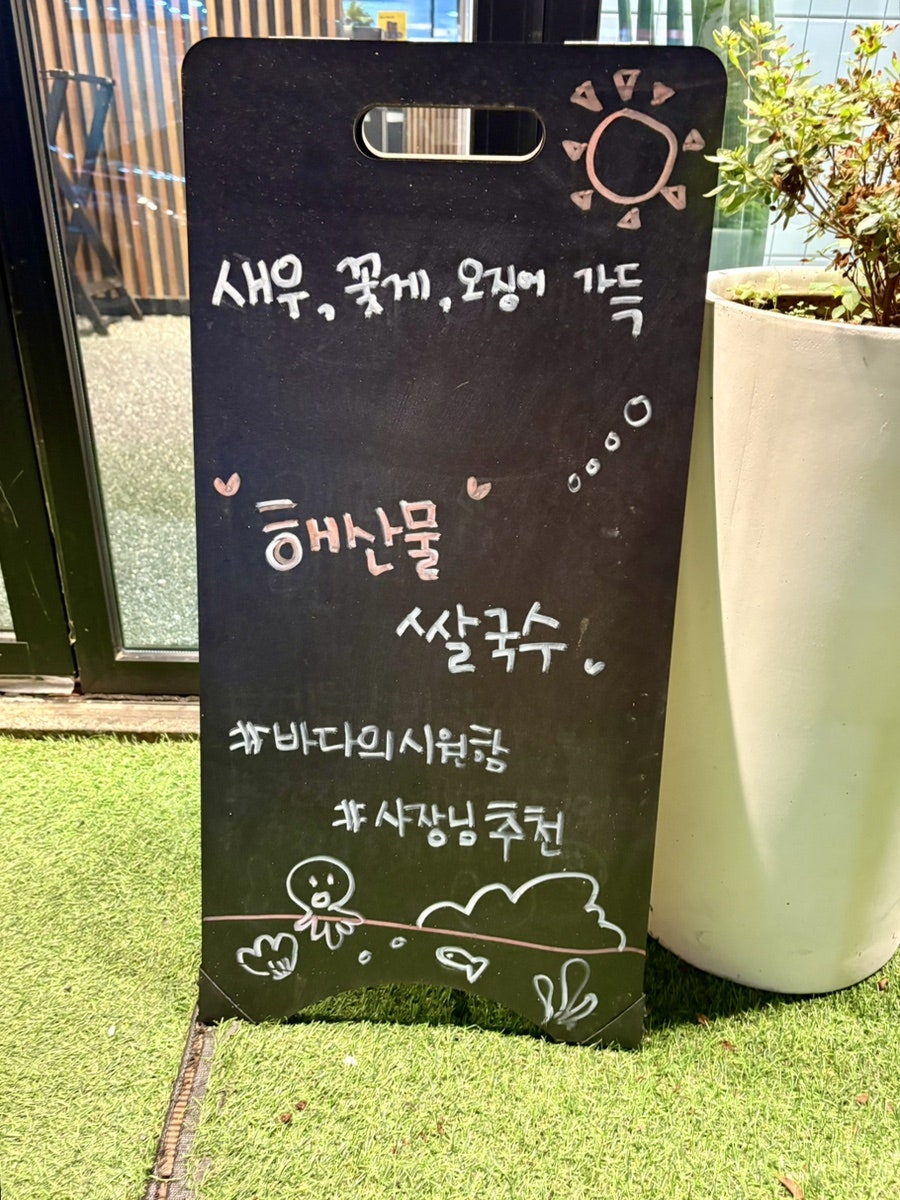 새우, 꽃게, 오징어 가득
해산물
쌀국수
#바다의시원함
#사장님추천